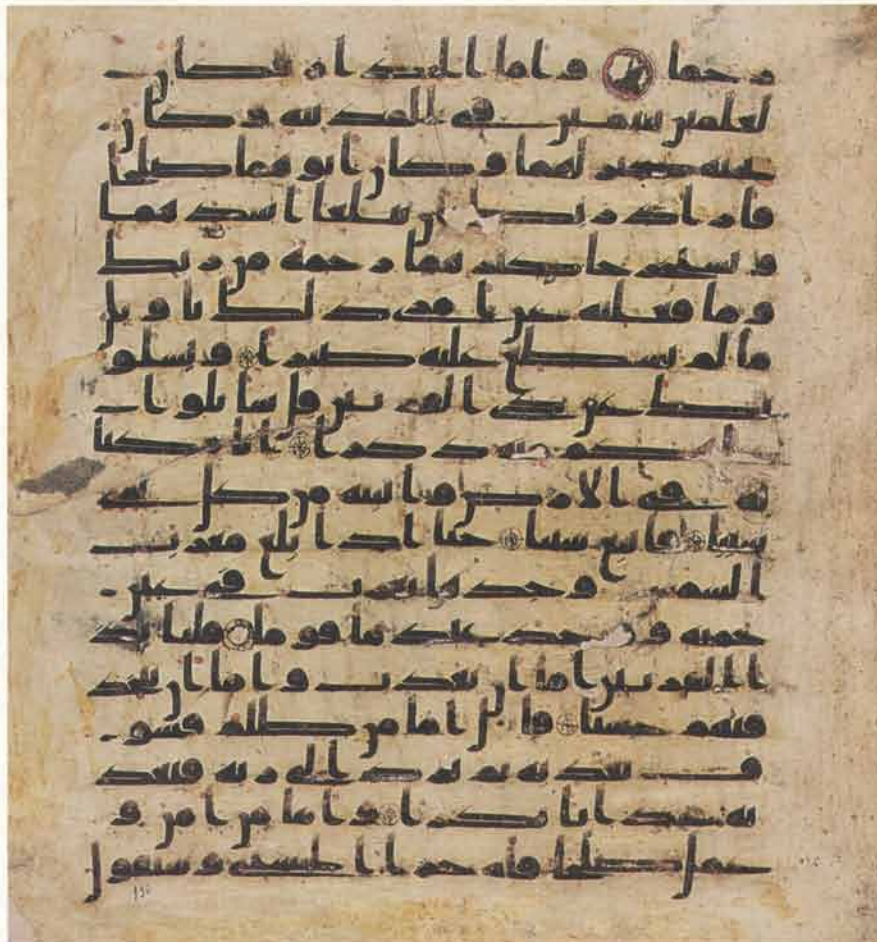 رحما واما الجدار فكان
لغلمين يتيمين في المدينة وكان
تحته كنز لهما وكان ابوهما صلحا
فاراد ربك ان يبلغا اشدهما
ويستخرجا كنزهما رحمة من ربك
وما فعلته عن امري ذلك تاويل
ما لم تسطع عليه صبرا ويسلو
نك عن ذي القرنين قل ساتلوا
عليكم منه ذكرا انا مكنا
له في الارض واتينه من كل شي
سببا فاتبع سببا حتى اذا بلغ مغرب
الشمس وجدها تغرب في عين
حمية ووجد عندها قوما قلنا يذ
ا القرنين اما ان تعذب واما ان تتخذ
فيهم حسنا قال اما من ظلم فسو
ف نعذبه ثم يرد الى ربه فيعذ
به عذابا نكرا واما من امن و
عمل صلحا فله جزا الحسنى وسنقول